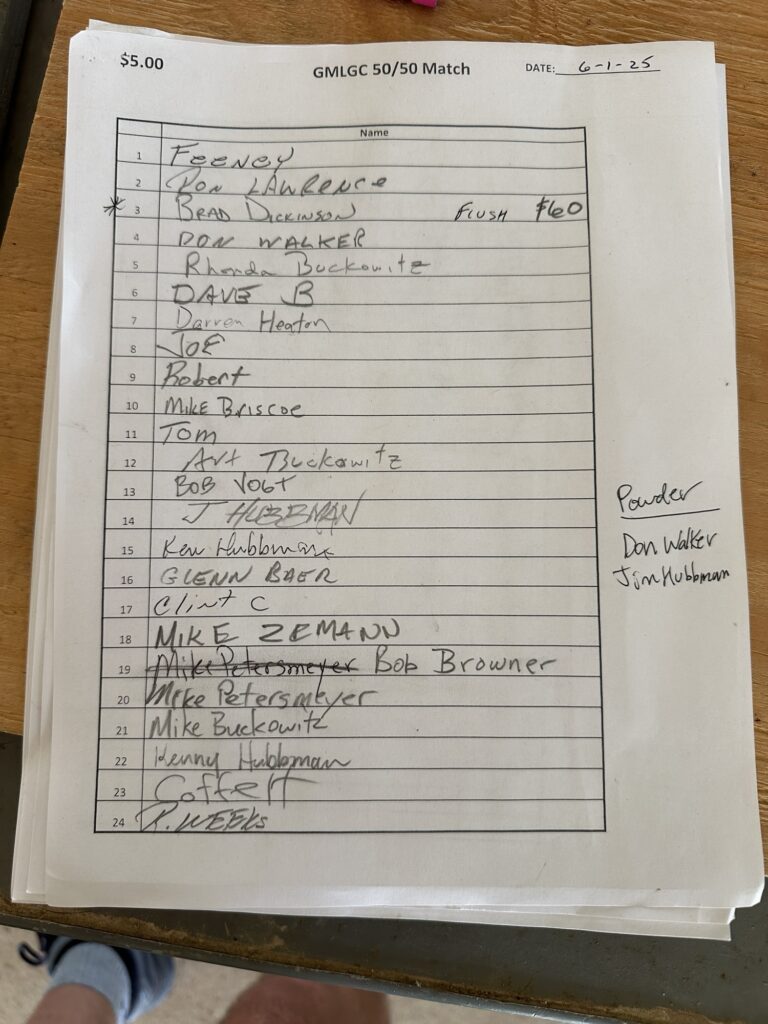 $5.00 GMLGC 50/50 Match DATE: 6-1-25
Name
1 Feeney
2 Ron Lawrence
* 3 Brad Dickinson Flush $60
4 Don Walker
5 Rhonda Buckowitz
6 Dave B
7 Darren Heaton
8 Joe
9 Robert
10 Mike Briscoe
11 Tom
12 Art Buckowitz
13 Bob Vogt
14 J Hubbman
15 Ken Hubbman
16 Glenn Baer
17 Clint C
18 Mike Zemann
19 Mike Petersmeyer Bob Browner
20 Mike Petersmeyer
21 Mike Buckowitz
22 Kenny Hubbman
23 Coffelt
24 R. Weeks
Powder
Don Walker
Jim Hubbman